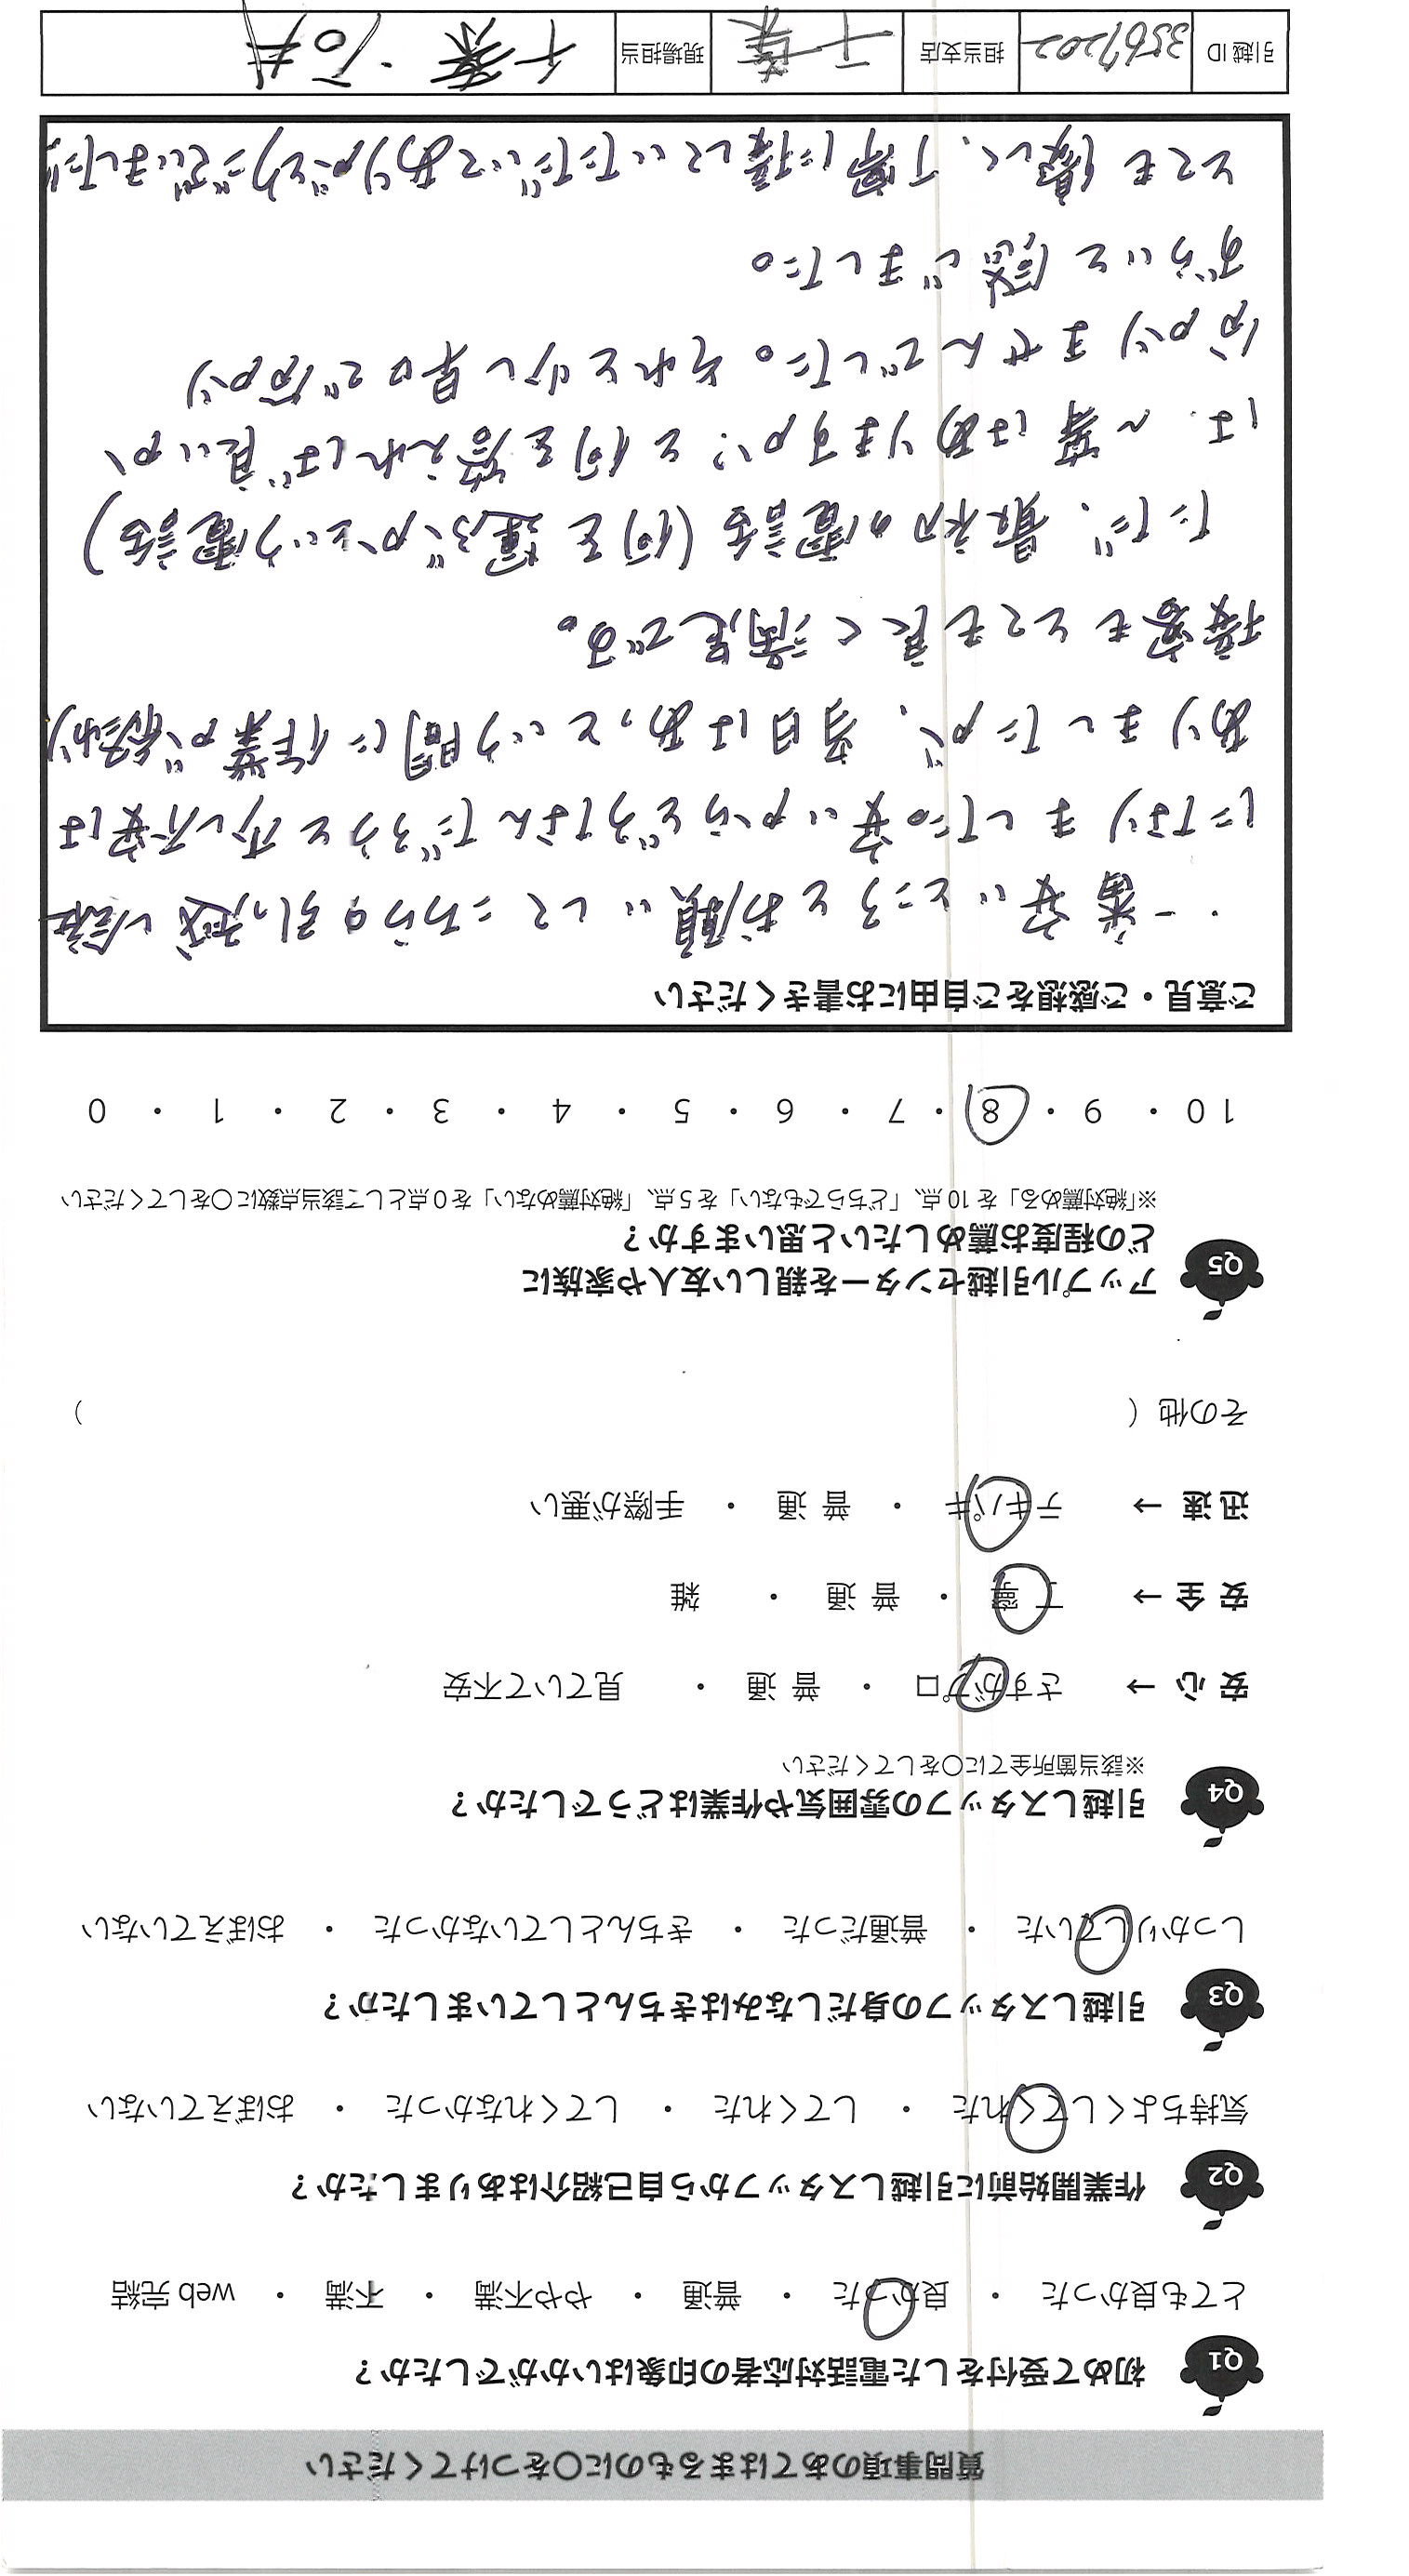 質問事項のあてはまるものに〇をつけてください
Q1 初めて受付をした電話対応者の印象はいかがでしたか？
とても良かった ・ 良かった ・ 普通 ・ やや不満 ・ 不満 ・ web 完結
Q2 作業開始前に引越しスタッフから自己紹介はありましたか？
気持ちよくしてくれた ・ してくれた ・ してくれなかった ・ おぼえていない
Q3 引越しスタッフの身だしなみはきちんとしていましたか？
しっかりしていた ・ 普通だった ・ きちんとしていなかった ・ おぼえていない
Q4 引越しスタッフの雰囲気や作業はどうでしたか？
※該当箇所全てに〇をしてください
安心 → さすがプロ ・ 普通 ・ 見ていて不安
安全 → 丁寧 ・ 普通 ・ 雑
迅速 → テキパキ ・ 普通 ・ 手際が悪い
その他（　）
Q5 アップル引越センターを親しい友人や家族に
どの程度お薦めしたいと思いますか？
※「絶対薦める」を10点、「どちらでもない」を5点、「絶対薦めない」を0点として該当点数に〇をしてください
10 ・ 9 ・ 8 ・ 7 ・ 6 ・ 5 ・ 4 ・ 3 ・ 2 ・ 1 ・ 0
ご意見・ご感想をご自由にお書きください
・一番安いところとお願いしてこちらの引っ越し会社
になりました。安いからどうなんだろうと少し不安は
ありましたが、当日はあっという間に作業が終わり
接客もとても良く満足です。
ただ、最初の電話（何を運ぶかという電話）
は、〜等はありますか？と何を答えれば良いか
分かりませんでした。それと少し早口で分かり
ずらいと感じました。
とても優しく、丁寧に接していただいてありがとうございました!!
引越ID 3567202 担当支店 千葉 現場担当 千葉・石井